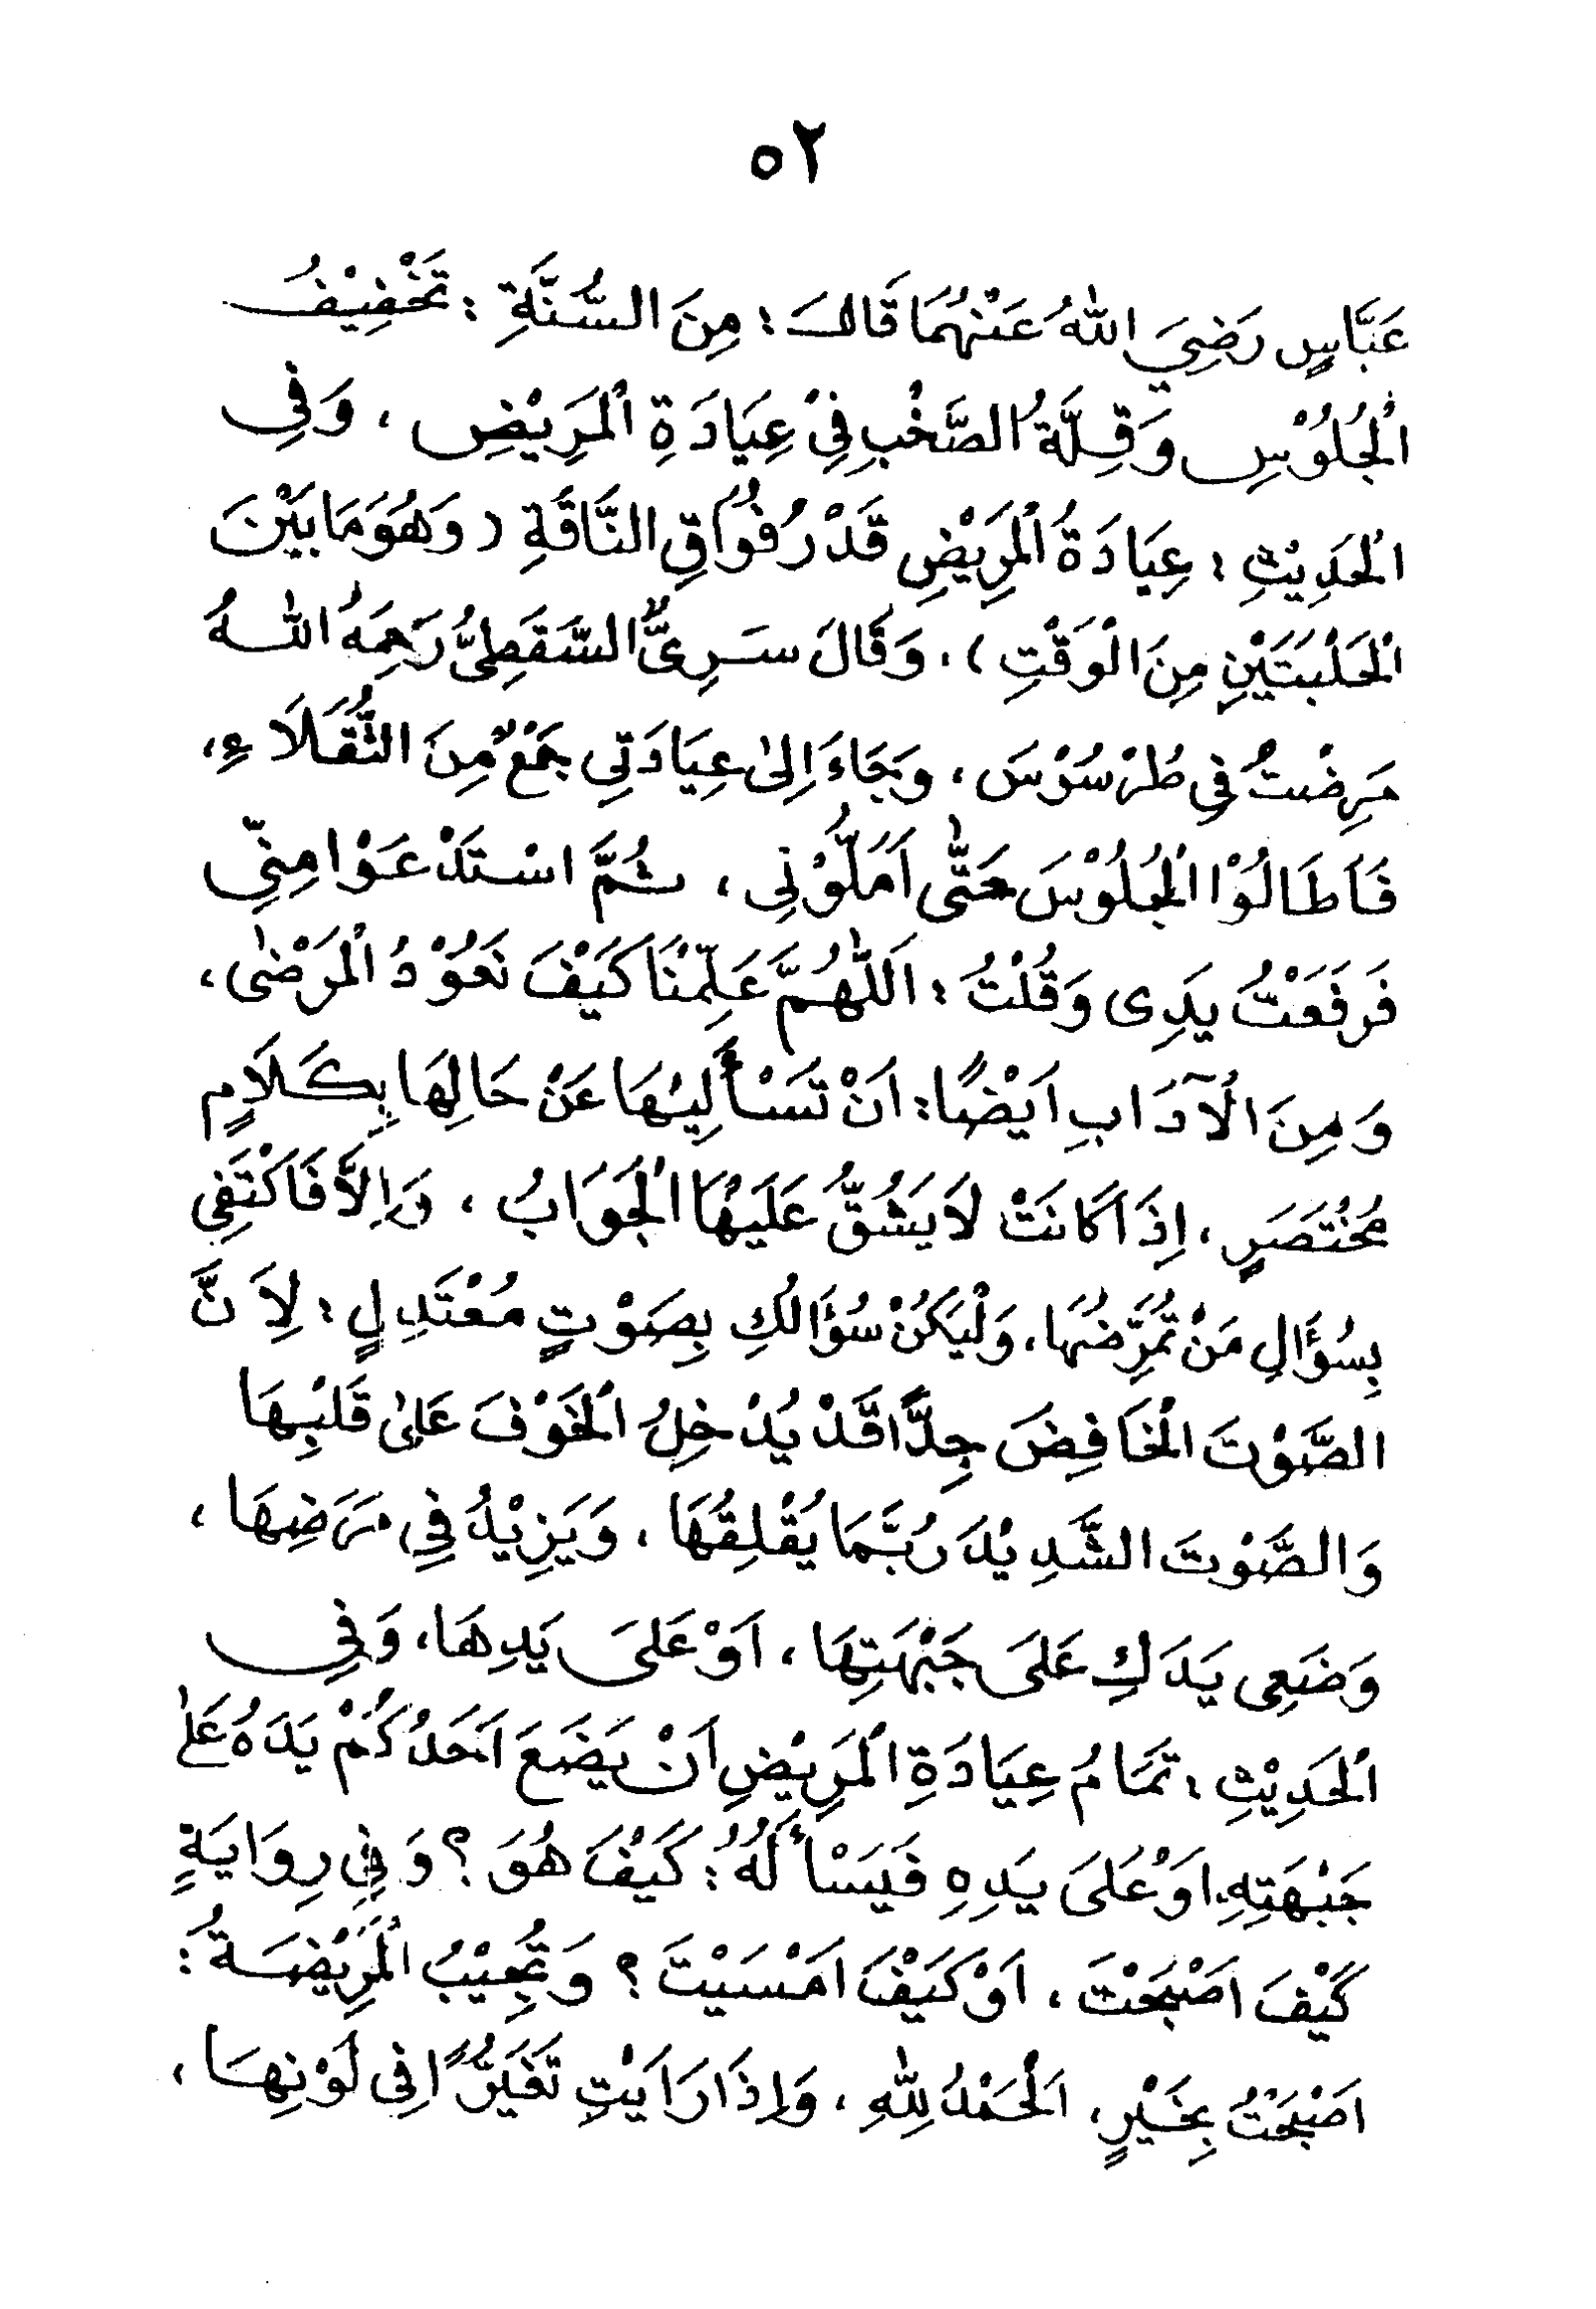 ٥٢
عَبَّاسٍ رَضِيَ اللهُ عَنْهُمَا قَالَ : مِنَ السُّنَّةِ : تَخْفِيْفُ
الْجُلُوْسِ وَقِلَّةُ الصَّخْبِ فِيْ عِيَادَةِ الْمَرِيْضِ ، وَفِي
الْحَدِيْثِ : عِيَادَةُ الْمَرِيْضِ قَدْرُ فُوَاقِ النَّاقَةِ ( وَهُوَ مَا بَيْنَ
الْحَلْبَتَيْنِ مِنَ الْوَقْتِ ) . وَقَالَ سَرِيٌّ السَّقَطِيُّ رَحِمَهُ اللهُ
مَرِضْتُ فِي طُرْسُوْسَ ، وَجَاءَ اِلىٰ عِيَادَتِي جَمْعٌ مِنَ الثُّقَلَاءِ ،
فَاَطَالُوْا الْجُلُوْسَ حَتّٰى اَمَلُّوْنِى ، ثُمَّ اسْتَدْعَوْا مِنِّي
فَرَفَعْتُ يَدِى وَقُلْتُ : اَللّٰهُمَّ عَلِّمْنَا كَيْفَ نَعُوْدُ الْمَرْضٰى ،
وَمِنَ الْآدَابِ اَيْضًا : اَنْ تَسْأَلِيْهَا عَنْ حَالِهَا بِكَلَامٍ
مُخْتَصَرٍ ، اِذَا كَانَتْ لَا يَشُقُّ عَلَيْهَا الْجَوَابُ ، وَاِلَّا فَاكْتَفِي
بِسُؤَالِ مَنْ تُمَرِّضُهَا ، وَلْيَكُنْ سُؤَالُكِ بِصَوْتٍ مُعْتَدِلٍ : لِاَنَّ
الصَّوْتَ الْخَافِضَ جِدًّا قَدْ يُدْخِلُ الْخَوْفَ عَلىٰ قَلْبِهَا
وَالصَّوْتَ الشَّدِيْدَ رُبَّمَا يُقْلِقُهَا ، وَيَزِيْدُ فِي مَرَضِهَا ،
وَضَعِى يَدَكِ عَلَى جَبْهَتِهَا ، اَوْ عَلَى يَدِهَا ، وَفِي
الْحَدِيْثِ : تَمَامُ عِيَادَةِ الْمَرِيْضِ اَنْ يَضَعَ اَحَدُكُمْ يَدَهُ عَلىٰ
جَبْهَتِهِ اَوْ عَلَى يَدِهِ فَيَسْأَلَهُ : كَيْفَ هُوَ ؟ وَفِي رِوَايَةٍ
كَيْفَ اَصْبَحْتَ ، اَوْ كَيْفَ اَمْسَيْتَ ؟ وَتُجِيْبُ الْمَرِيْضَةُ :
اَصْبَحْتُ بِخَيْرٍ ، اَلْحَمْدُ لِلّٰهِ ، وَاِذَا رَاَيْتِ تَغَيُّرًا فِى لَوْنِهَا ،